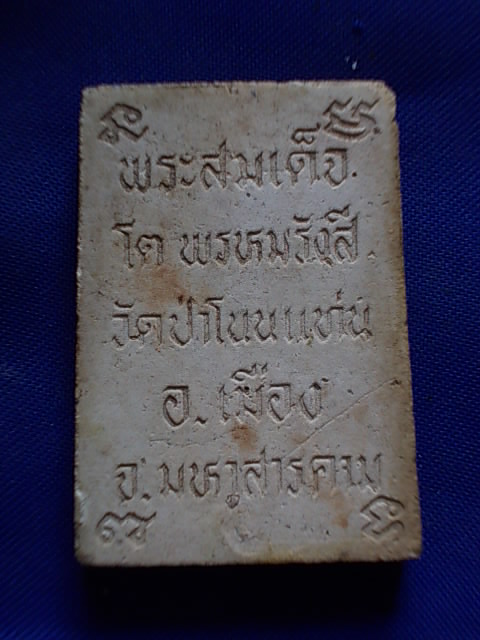 พระสมเด็จ
โต พรหมรังสี
วัดป่าโนนแท่น
อ.เมือง
จ.มหาสารคาม